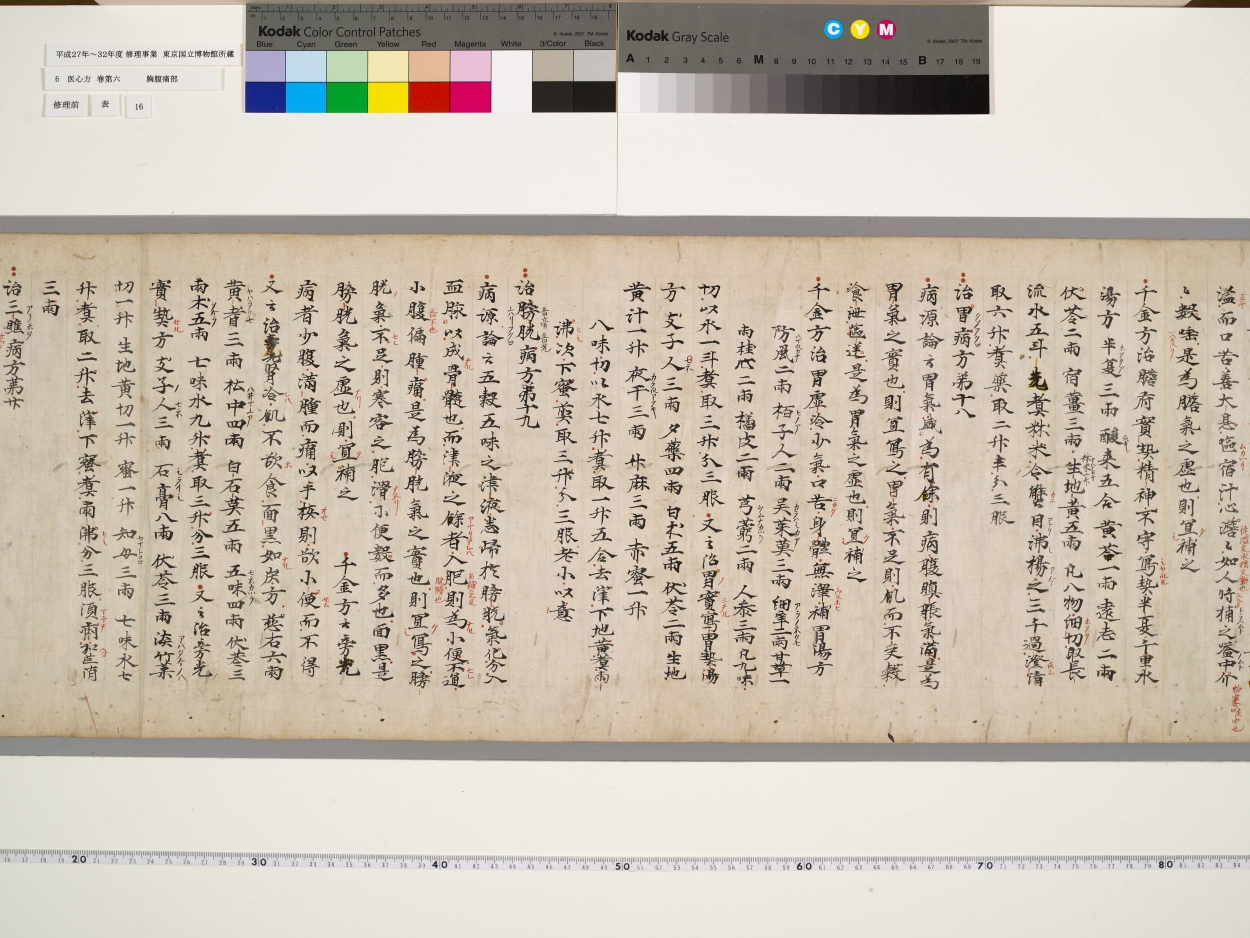 平成27年~32年度 修理事業 東京国立博物館所蔵
6 医心方 巻第六 胸腹痛部
修理前 表 16
Kodak Color Control Patches
Blue Cyan Green Yellow Red Magenta White 3/Color Black
Kodak Gray Scale
C Y M
A 1 2 3 4 5 6 M 8 9 10 11 12 13 14 15 B 17 18 19
溢而口苦善大息
數唾是為膽氣之虛也則宜補之
千金方治膽府實熱精神不守寫熱半夏千里水
湯方半夏三兩酸棗五合黃芩一兩遠志二兩
伏苓二兩宿薑三兩生地黃五兩凡八物細切取長
流水五斗先煮秫米令蟹目沸揚之三千過澄清
取六升煮藥取二升半分三服
治胃病方第十八
病源論云胃氣盛為有餘則病腹䐜脹氣滿是為
胃氣之實也則宜寫之胃氣不足則飢而不受穀
飡泄嘔逆是為胃氣之虛也則宜補之
千金方治胃虛冷少氣口苦身體無澤補胃湯方
防風二兩栢子人二兩吳茱萸三兩細辛二兩甘草一
兩桂心二兩橘皮二兩芎藭二兩人參三兩凡九味
切以水一斗煮取三升分三服又云治胃實寫胃熱湯
方支子人三兩夕藥四兩白朮五兩伏苓二兩生地
黃汁一升夜干三兩升麻三兩赤蜜一升
八味切以水七升煮取一升五合去滓下地黃煮兩
沸次下蜜煎取三升分三服老小以意
治膀胱病方第十九
病源論云五穀五味之津液悉歸於膀胱氣化分入
血脉以成骨髓也而津液之餘者入胞則為小便不通
小腹偏腫痛是為膀胱氣之實也則宜寫之膀
胱氣不足則寒客之胞滑小便數而多也面黑是
膀胱氣之虛也則宜補之 千金方云旁光
病者少腹滿腫而痛以手桉則欲小便而不得
又云治旁光腎冷飢不欲食面黑如炭方慈石六兩
黃耆三兩松中四兩白石英五兩五味四兩伏苓三
兩朮五兩七味水九升煮取三升分三服又云治旁光
實熱方支子人三兩石膏八兩伏苓三兩淡竹葉
切一升生地黃切一升蜜一升知母三兩七味水七
升煮取二升去滓下蜜煮兩沸分三服須利加芒消
三兩
治三膲病方第廿
20 30 40 50 60 70 80